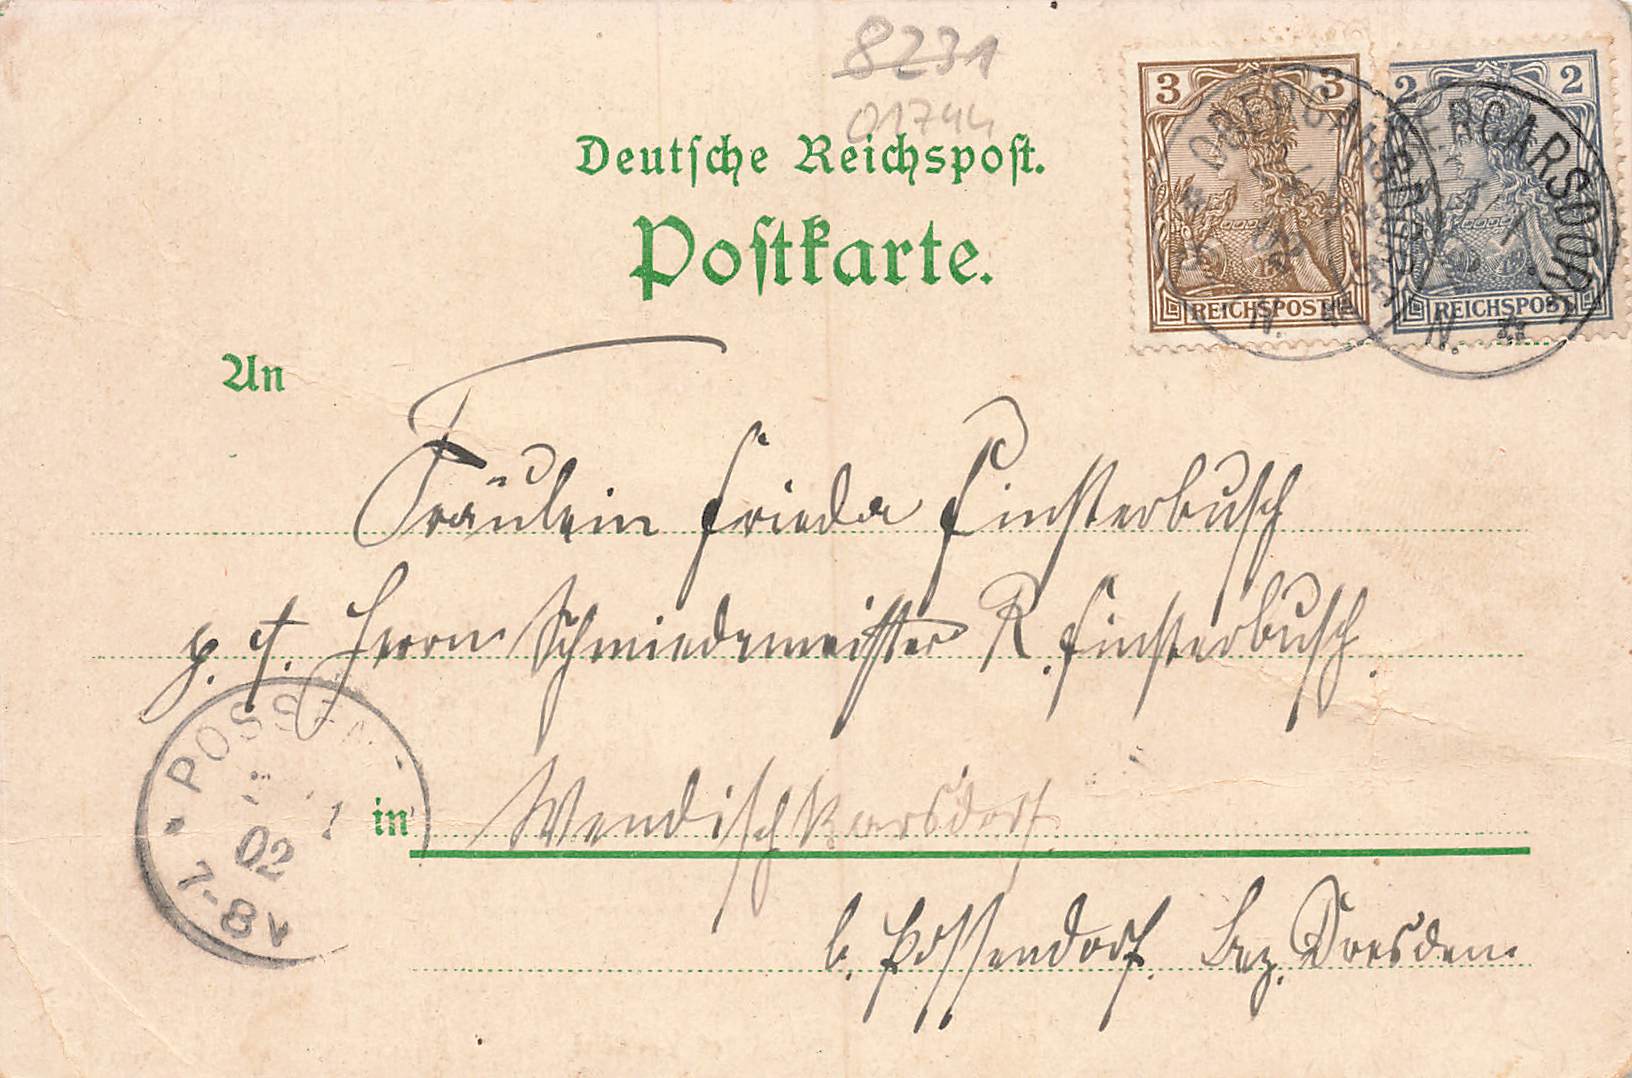 8231
01744
Deutsche Reichspost.
Postkarte.
3 3
REICHSPOST
2 2
REICHSPOST
OBERCARSDORF
02
An
Fräulein Frieda Finsterbusch
p. A. Herrn Schmiedemeister R. Finsterbusch.
in Wendischkarsdorf
b. Possendorf. Bez. Dresden
POSSEN
1
02
7-8V